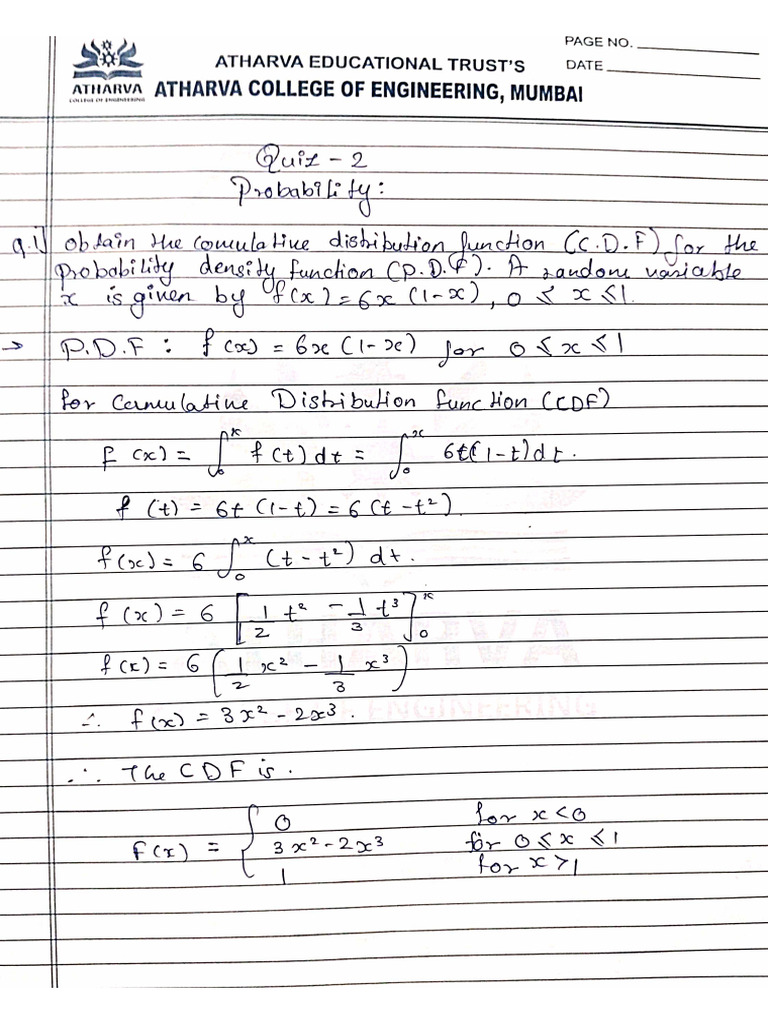 PAGE NO.
ATHARVA EDUCATIONAL TRUST'S
DATE
ATHARVA
COLLEGE OF ENGINEERING
ATHARVA COLLEGE OF ENGINEERING, MUMBAI
Quiz - 2
Probability:
Q.1) Obtain the comulative distribution function (C.D.F) for the
probability density function (P.D.F). A randone variable
x is given by f(x) = 6x (1-x), 0 ≤ x ≤ 1.
→ P.D.F : f(x) = 6x (1-x) for 0 ≤ x ≤ 1
for Cumulative Distribution function (CDF)
F(x) = ∫₀ˣ f(t) dt = ∫₀ˣ 6t(1-t) dt.
f(t) = 6t (1-t) = 6 (t - t²)
f(x) = 6 ∫₀ˣ (t - t²) dt.
f(x) = 6 [1/2 t² - 1/3 t³]₀ˣ
f(x) = 6 (1/2 x² - 1/3 x³)
∴ f(x) = 3x² - 2x³.
∴ The CDF is.
0 for x < 0
F(x) = { 3x² - 2x³ for 0 ≤ x ≤ 1
1 for x > 1